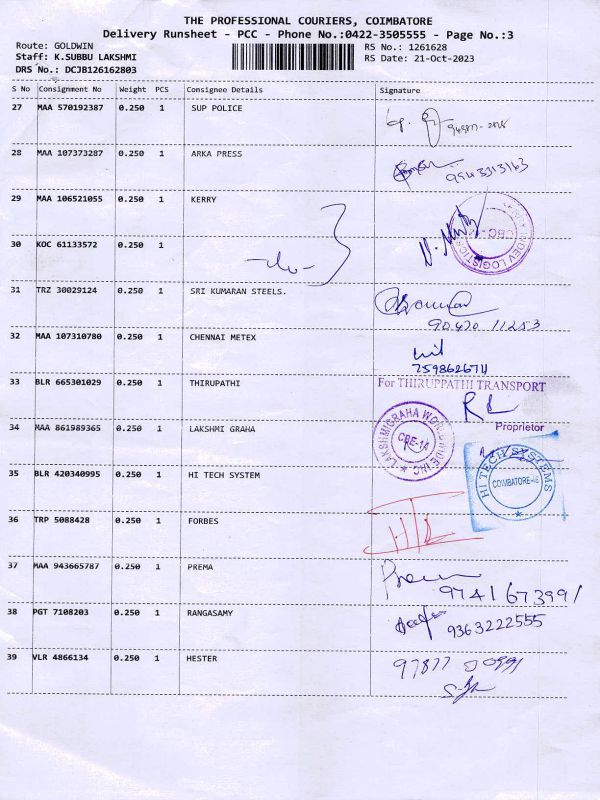 THE PROFESSIONAL COURIERS, COIMBATORE
Delivery Runsheet - PCC - Phone No.:0422-3505555 - Page No.:3
Route: GOLDWIN RS No.: 1261628
Staff: K.SUBBU LAKSHMI RS Date: 21-Oct-2023
DRS No.: DCJB126162803
S No Consignment No Weight PCS Consignee Details Signature
27 MAA 570192387 0.250 1 SUP POLICE
28 MAA 107373287 0.250 1 ARKA PRESS
9943313163
29 MAA 106521055 0.250 1 KERRY
30 KOC 61133572 0.250 1
31 TRZ 30029124 0.250 1 SRI KUMARAN STEELS.
90470 11253
32 MAA 107310780 0.250 1 CHENNAI METEX
7598626711
33 BLR 665301029 0.250 1 THIRUPATHI
For THIRUPPATHI TRANSPORT
Proprietor
34 MAA 861989365 0.250 1 LAKSHMI GRAHA
LAKSHMIGRAHA WORLDWIDE INC
CBE-14
35 BLR 420340995 0.250 1 HI TECH SYSTEM
HI TECH SYSTEMS
36 TRP 5088428 0.250 1 FORBES
37 MAA 943665787 0.250 1 PREMA
9741673991
38 PGT 7108203 0.250 1 RANGASAMY
9363222555
39 VLR 4866134 0.250 1 HESTER